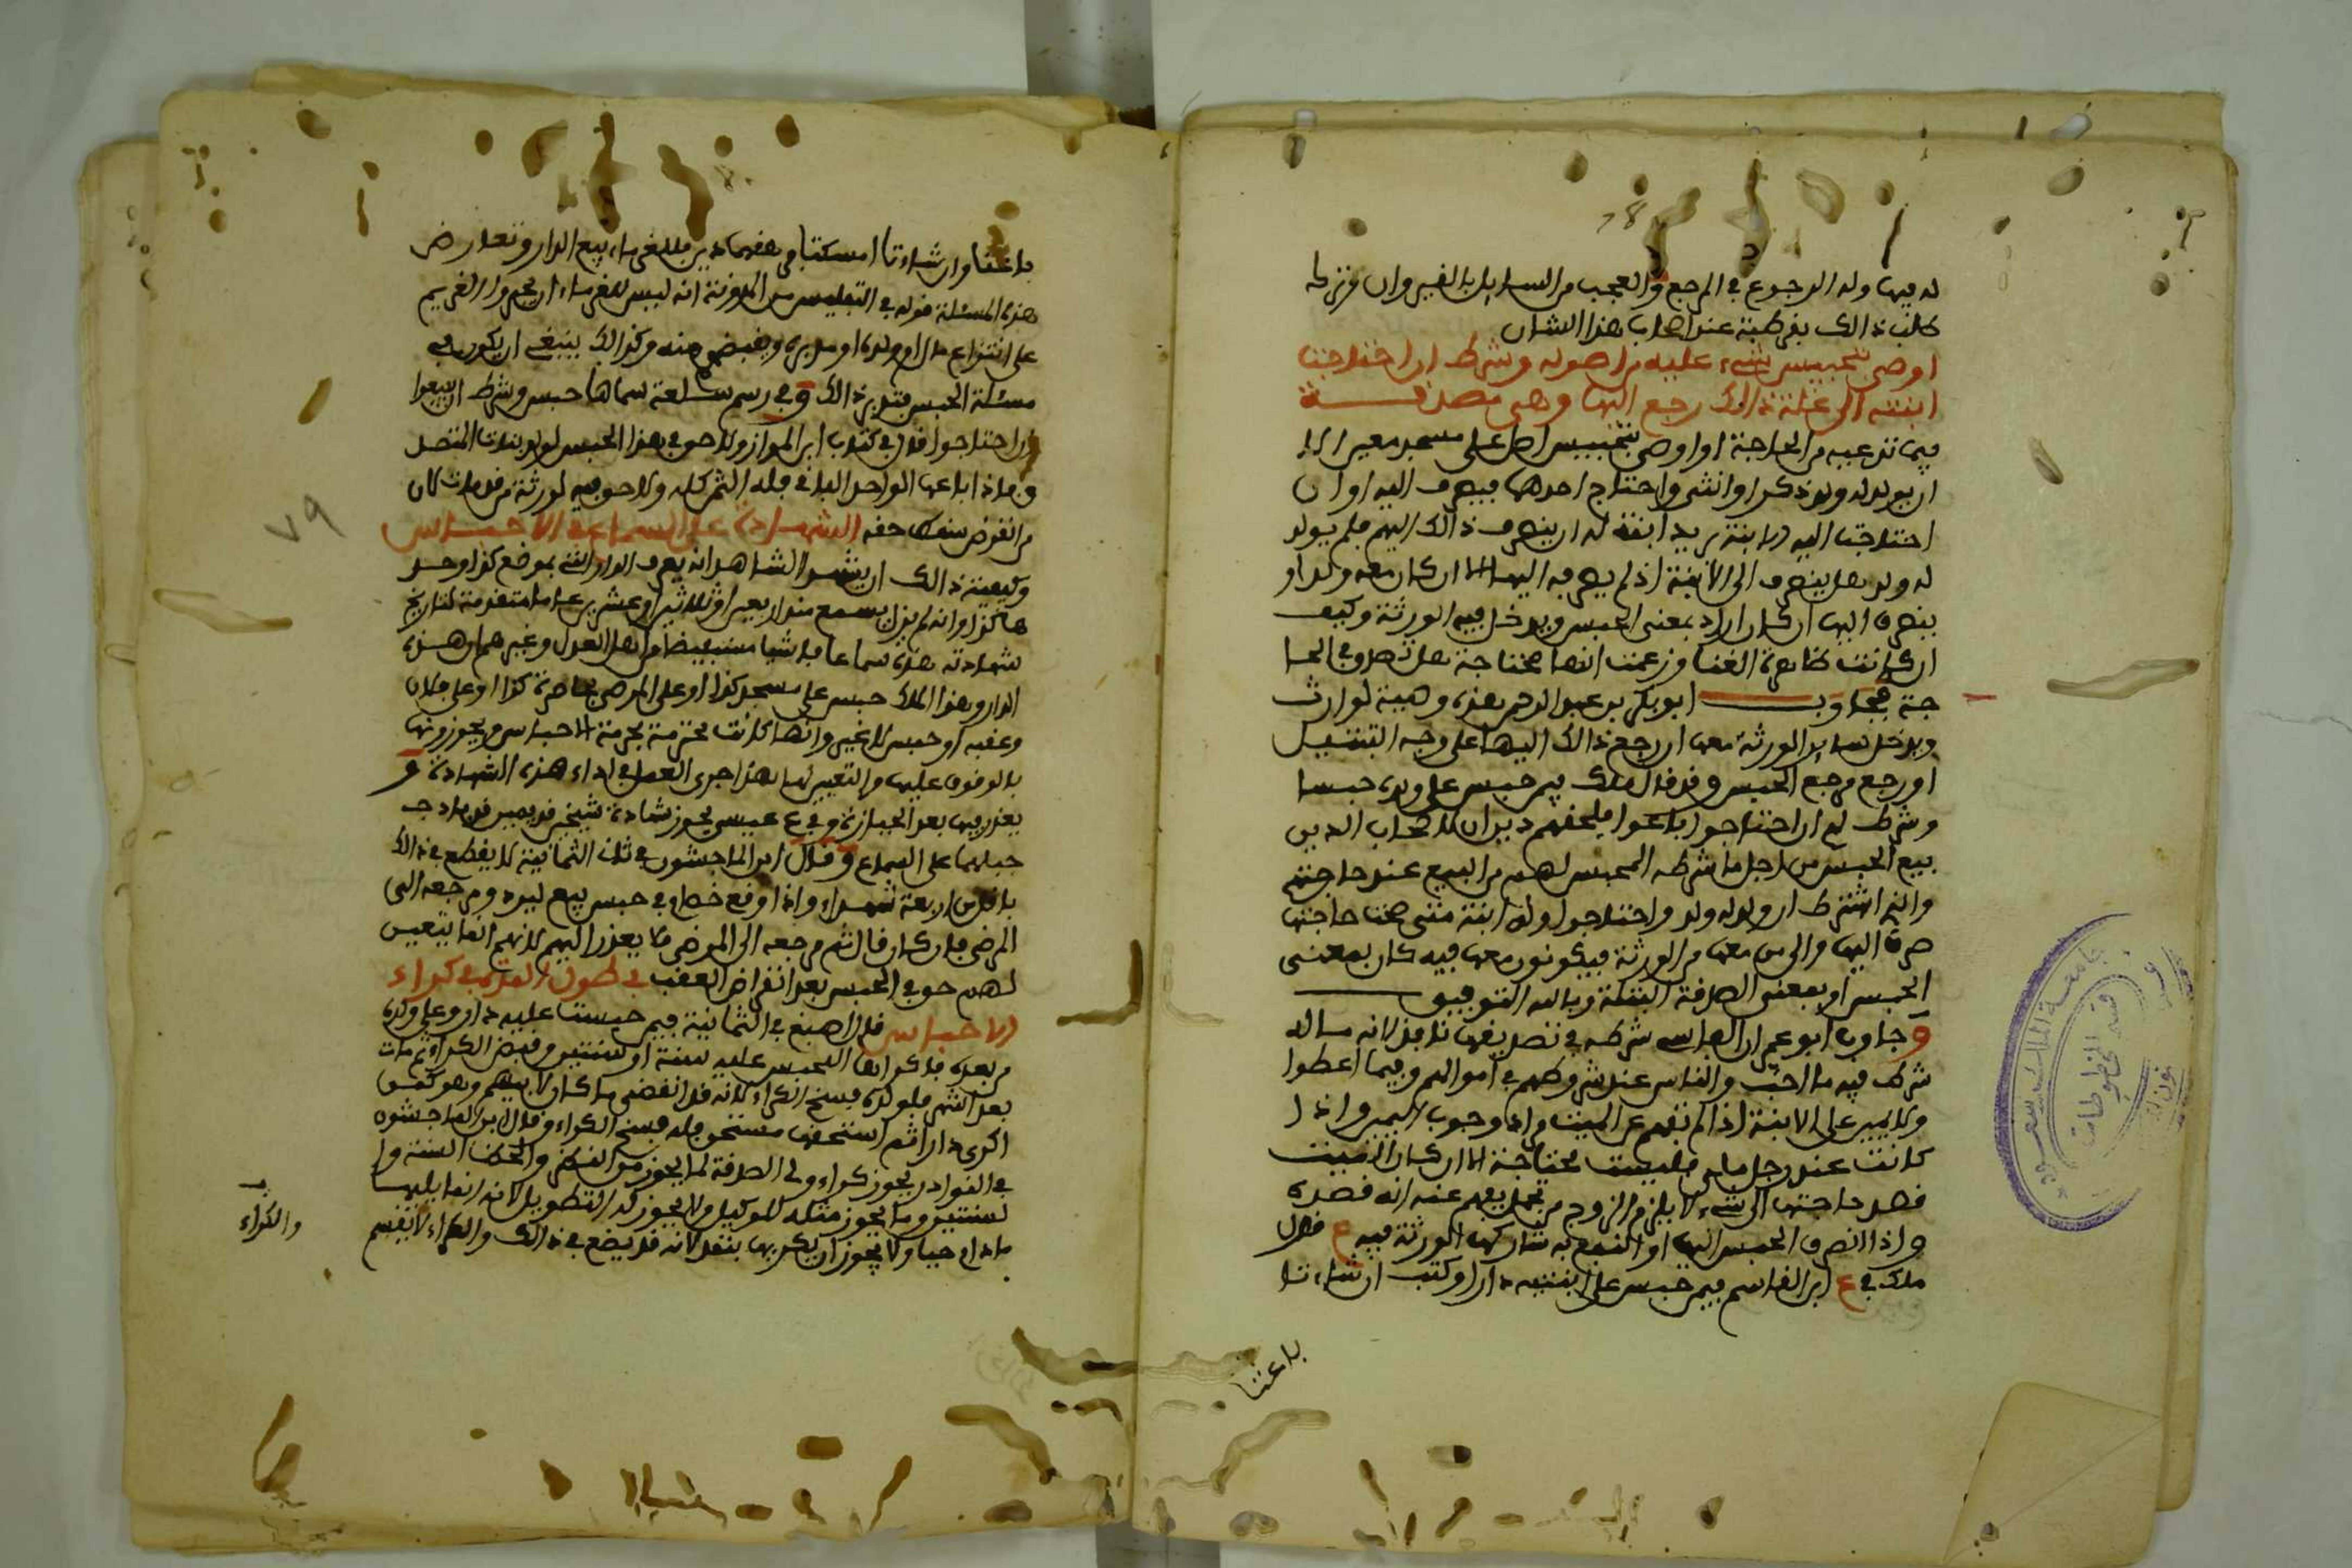 له فيها وله الرجوع في المرجع والعجب من السايل بالفير وان
كانت ذالك بقرطبة عند اصحاب هذا الشان
اوصى بتحبيس شيء عليه من اصوله وشرط ان احتاجت
ابنته الى غلة ذالك رجع اليها وهى مصدقة
فيما تدعيه من الحاجة او اوصى بتحبيس اصل على مسجد معين الا
ان يولد له ولد ذكر او انثى واحتاج احدهما فيصرف اليه او ان
احتاجت اليه ابنته يريد ابنة له ان ينصرف ذالك اليهم فلم يولد
له ولد هل ينصرف الى الابنة اذ لم يصرفه اليها الا ان كان معه ولد او
ينصرف اليها ان كان اراد بمعنى الحبس ويدخل فيه الورثة وكيف
ان كانت ظاهرة الغنا وزعمت انها محتاجة هل تصدق في الحا
جة فجاوب ابو بكر بن عبد الرحمن هذه وصية لوارث
ويدخل ساير الورثة معها ان رجع ذالك اليها على وجه التنفيل
او رجع مرجع الحبس وقد قال ملك فيمن حبس على ولده حبسا
وشرط لهم ان احتاجوا باعوا فلحقهم دين ان لاصحاب الدين
بيع الحبس من اجل ما شرطه المحبس لهم من البيع عند حاجتهم
وان اشترط ان ولد له ولد واحتاجوا وله ابنة متى صحت حاجتها
صرف اليها والى من معها من الورثة فيكونون معها فيه كان بمعنى
الحبس او بمعنى الصدقة البتلة وبالله التوفيق
وجاوب ابو عمران الفاسي شرطه في تصديقها نافذ لانه ماله
شرط فيه ما احب والناس عند شروطهم في اموالهم وفيما اعطوا
ولا يمين على الابنة اذا لم تفهم عن الميت وجوب اليمين واذا
كانت عند رجل ملي فليست محتاجة الا ان كان اثبتت
فصد حاجتها الى شيء لا يلزم الزوج من يفهم عنه انه قصده
واذا انصرف الحبس اليها او النفع به شاركها الورثة فيه ع قال
ملك في ع ابن القاسم فيمن حبس على ابنتيه دارا وكتب ان شاءتا
باعتا
باعتا وان شاءتا امسكتا فرهقهما دين فللغرماء بيع الدار وتعارض
هذه المسئلة قوله في التفليس من المدونة انه ليس للغرماء ان يجبروا الغريم
على انتزاع مال ام ولده او مدبره ويقبض منه وكذالك ينبغي ان يكون في
مسئلة الحبس فتدبر ذالك وفي رسم سلعة سماها حبس وشرط ان يبيعوا
ان احتاجوا قال في كتاب ابن المواز ولا حق في هذا الحبس لولد بنات المتصل
وماذا باعها الواحد الباقي فله الثمن كله ولا حق فيه لورثة من قد مات لان
من انقرض سقط حقه الشهادة على السماع في الاحباس
وكيفية ذالك ان يشهد الشاهد انه يعرف الدار التي بموضع كذا وحد
ها كذا وانه لم يزل يسمع منذ اربعين او ثلاثين او عشرين عاما متقدمة لتاريخ
شهادته هذه سماعا فاشيا مستفيضا من اهل العدل وغيرهم ان هذه
الدار وهذا الملك حبس على مسجد كذا او على المرضى بحاضرة كذا او على فلان
وعقبه او حبس لا غير وانها كانت محترمة بحرمة الاحباس ويحوزونها
بالوقوف عليها والتعيين لها هذا جرى العمل في اداء هذه الشهادة و
يعذر فيها بعد الحيازة وفي ع عيسى يجوز شهادة شيخين قديمين قد باد
جيلهما على السماع وقال ابن الماجشون في ثلث الثمانية لا يقطع في ذالك
باقل من اربعة شهداء واذا وقع خطا في حبس بيع ليرد ومرجعه الى
المرضى فان كان قال ثم مرجعه الى المرضى فلا يعذر اليهم لانهم انما يتعين
لهم حق في الحبس بعد انقراض العقب في طول المدة في كراء
الاحباس قال اصبغ في الثمانية فيمن حبست عليه دار وعلى ولده
من بعده فاكراها المحبس عليه سنة او سنتين وقبض الكراء ثم مات
بعد اشهر فلولده فسخ الكراء لانه قد انقضى ما كان لابيهم وهو كمن
اكرى دارا ثم استحقها مستحق فله فسخ الكراء وقال ابن الماجشون
في النوادر يجوز كراء ولي الصدقة لما يجوز من النظر والحظ السنة وا
لسنتين وما يجوز مثله للوكيل ولا يجوز له التطويل لانه انما يليها
مادام حيا ولا يجوز ان يكريها بنقد لانه قد يضع في ذالك والكراء لا يقسم
والكراء
٧٩
جامعة الملك سعود
قسم المخطوطات